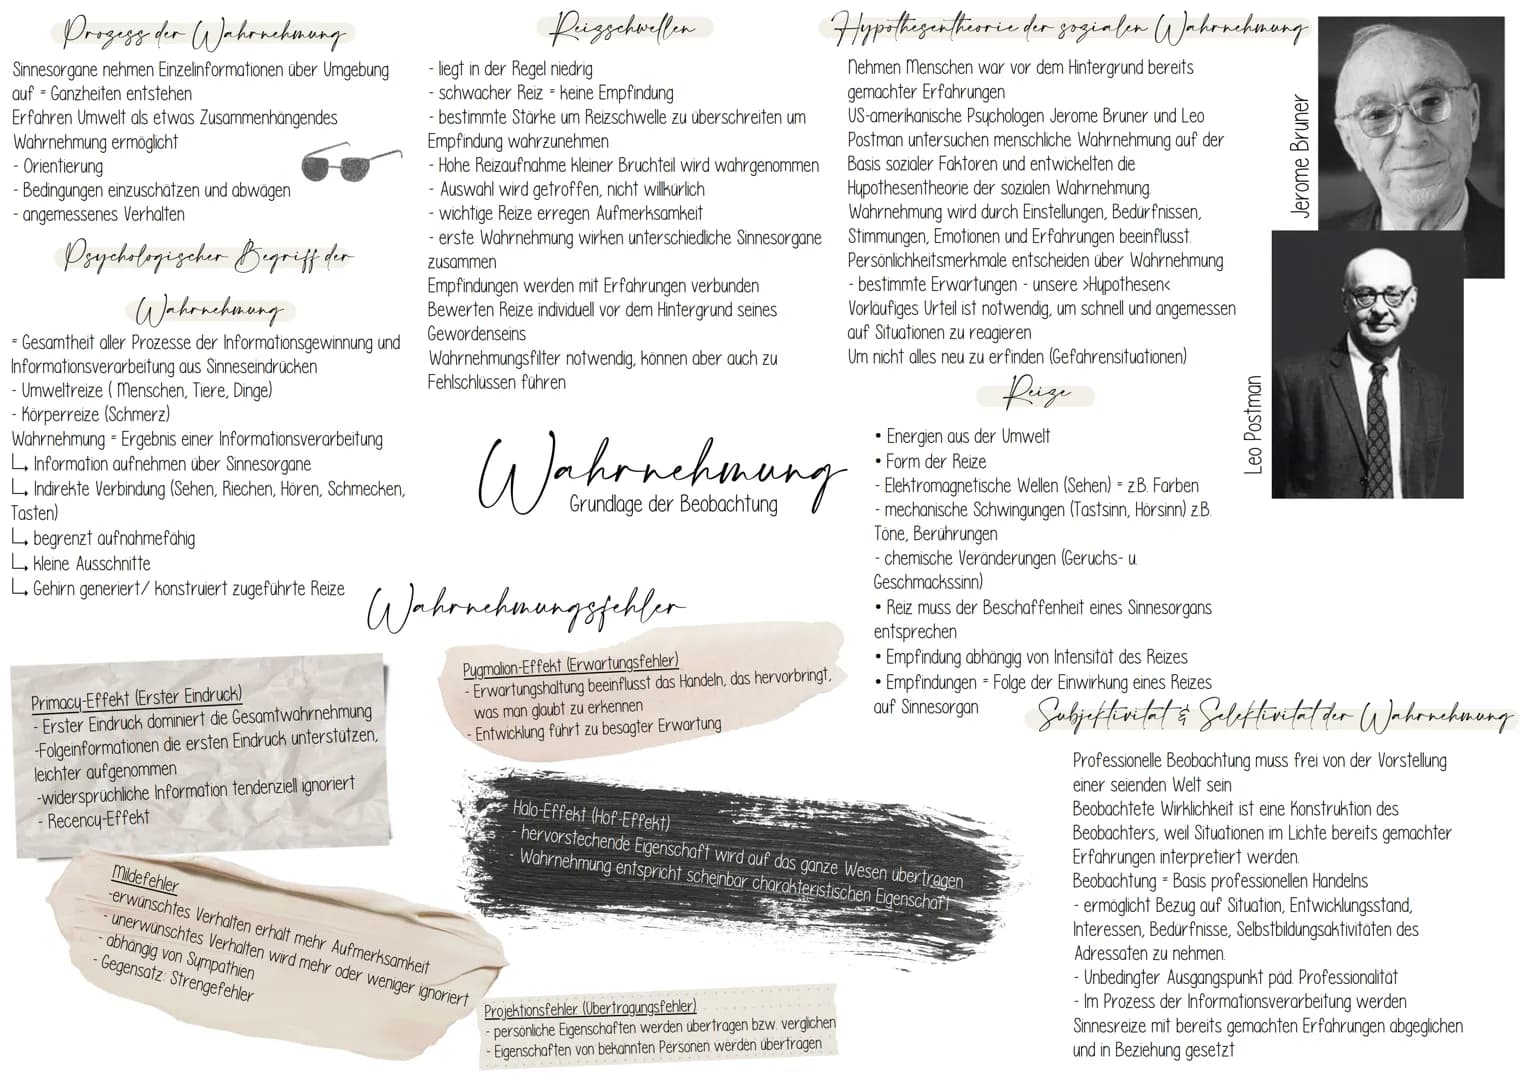 Prozess der Wahrnehmung
Sinnesorgane nehmen Einzelinformationen über Umgebung
auf = Ganzheiten entstehen
Erfahren Umwelt als etwas Zusammenhängendes
Wahrnehmung ermöglicht
- Orientierung
- Bedingungen einzuschätzen und abwägen
- angemessenes Verhalten
Psychologischer Begriff der
Wahrnehmung
= Gesamtheit aller Prozesse der Informationsgewinnung und
Informationsverarbeitung aus Sinneseindrücken
- Umweltreize ( Menschen, Tiere, Dinge)
- Körperreize (Schmerz)
Wahrnehmung = Ergebnis einer Informationsverarbeitung
↳ Information aufnehmen über Sinnesorgane
↳ Indirekte Verbindung (Sehen, Riechen, Hören, Schmecken,
Tasten)
↳ begrenzt aufnahmefähig
↳ kleine Ausschnitte
↳ Gehirn generiert/ konstruiert zugeführte Reize
Reizschwellen
- liegt in der Regel niedrig
- schwacher Reiz = keine Empfindung
- bestimmte Stärke um Reizschwelle zu überschreiten um
Empfindung wahrzunehmen
- Hohe Reizaufnahme kleiner Bruchteil wird wahrgenommen
- Auswahl wird getroffen, nicht willkürlich
- wichtige Reize erregen Aufmerksamkeit
- erste Wahrnehmung wirken unterschiedliche Sinnesorgane
zusammen
Empfindungen werden mit Erfahrungen verbunden
Bewerten Reize individuell vor dem Hintergrund seines
Gewordenseins
Wahrnehmungsfilter notwendig, können aber auch zu
Fehlschlüssen führen
Hypothesentheorie der sozialen Wahrnehmung
Nehmen Menschen war vor dem Hintergrund bereits
gemachter Erfahrungen
US-amerikanische Psychologen Jerome Bruner und Leo
Postman untersuchen menschliche Wahrnehmung auf der
Basis sozialer Faktoren und entwickelten die
Hypothesentheorie der sozialen Wahrnehmung.
Wahrnehmung wird durch Einstellungen, Bedürfnissen,
Stimmungen, Emotionen und Erfahrungen beeinflusst.
Persönlichkeitsmerkmale entscheiden über Wahrnehmung
- bestimmte Erwartungen - unsere >Hypothesen<
Vorläufiges Urteil ist notwendig, um schnell und angemessen
auf Situationen zu reagieren
Um nicht alles neu zu erfinden (Gefahrensituationen)
Jerome Bruner
Leo Postman
Wahrnehmung
Grundlage der Beobachtung
Reize
• Energien aus der Umwelt
• Form der Reize
- Elektromagnetische Wellen (Sehen) = z.B. Farben
- mechanische Schwingungen (Tastsinn, Hörsinn) z.B.
Töne, Berührungen
- chemische Veränderungen (Geruchs- u.
Geschmackssinn)
• Reiz muss der Beschaffenheit eines Sinnesorgans
entsprechen
• Empfindung abhängig von Intensität des Reizes
• Empfindungen = Folge der Einwirkung eines Reizes
auf Sinnesorgan
Wahrnehmungsfehler
Primacy-Effekt (Erster Eindruck)
- Erster Eindruck dominiert die Gesamtwahrnehmung
-Folgeinformationen die ersten Eindruck unterstützen,
leichter aufgenommen
-widersprüchliche Information tendenziell ignoriert
- Recency-Effekt
Pygmalion-Effekt (Erwartungsfehler)
- Erwartungshaltung beeinflusst das Handeln, das hervorbringt,
was man glaubt zu erkennen
- Entwicklung führt zu besagter Erwartung
Halo-Effekt (Hof-Effekt)
- hervorstechende Eigenschaft wird auf das ganze Wesen übertragen
- Wahrnehmung entspricht scheinbar charakteristischen Eigenschaft
Mildefehler
-erwünschtes Verhalten erhält mehr Aufmerksamkeit
- unerwünschtes Verhalten wird mehr oder weniger ignoriert
- abhängig von Sympathien
- Gegensatz: Strengefehler
Projektionsfehler (Übertragungsfehler)
- persönliche Eigenschaften werden übertragen bzw. verglichen
- Eigenschaften von bekannten Personen werden übertragen
Subjektivität & Selektivität der Wahrnehmung
Professionelle Beobachtung muss frei von der Vorstellung
einer seienden Welt sein
Beobachtete Wirklichkeit ist eine Konstruktion des
Beobachters, weil Situationen im Lichte bereits gemachter
Erfahrungen interpretiert werden.
Beobachtung = Basis professionellen Handelns
- ermöglicht Bezug auf Situation, Entwicklungsstand,
Interessen, Bedürfnisse, Selbstbildungsaktivitäten des
Adressaten zu nehmen.
- Unbedingter Ausgangspunkt päd. Professionalität
- Im Prozess der Informationsverarbeitung werden
Sinnesreize mit bereits gemachten Erfahrungen abgeglichen
und in Beziehung gesetzt